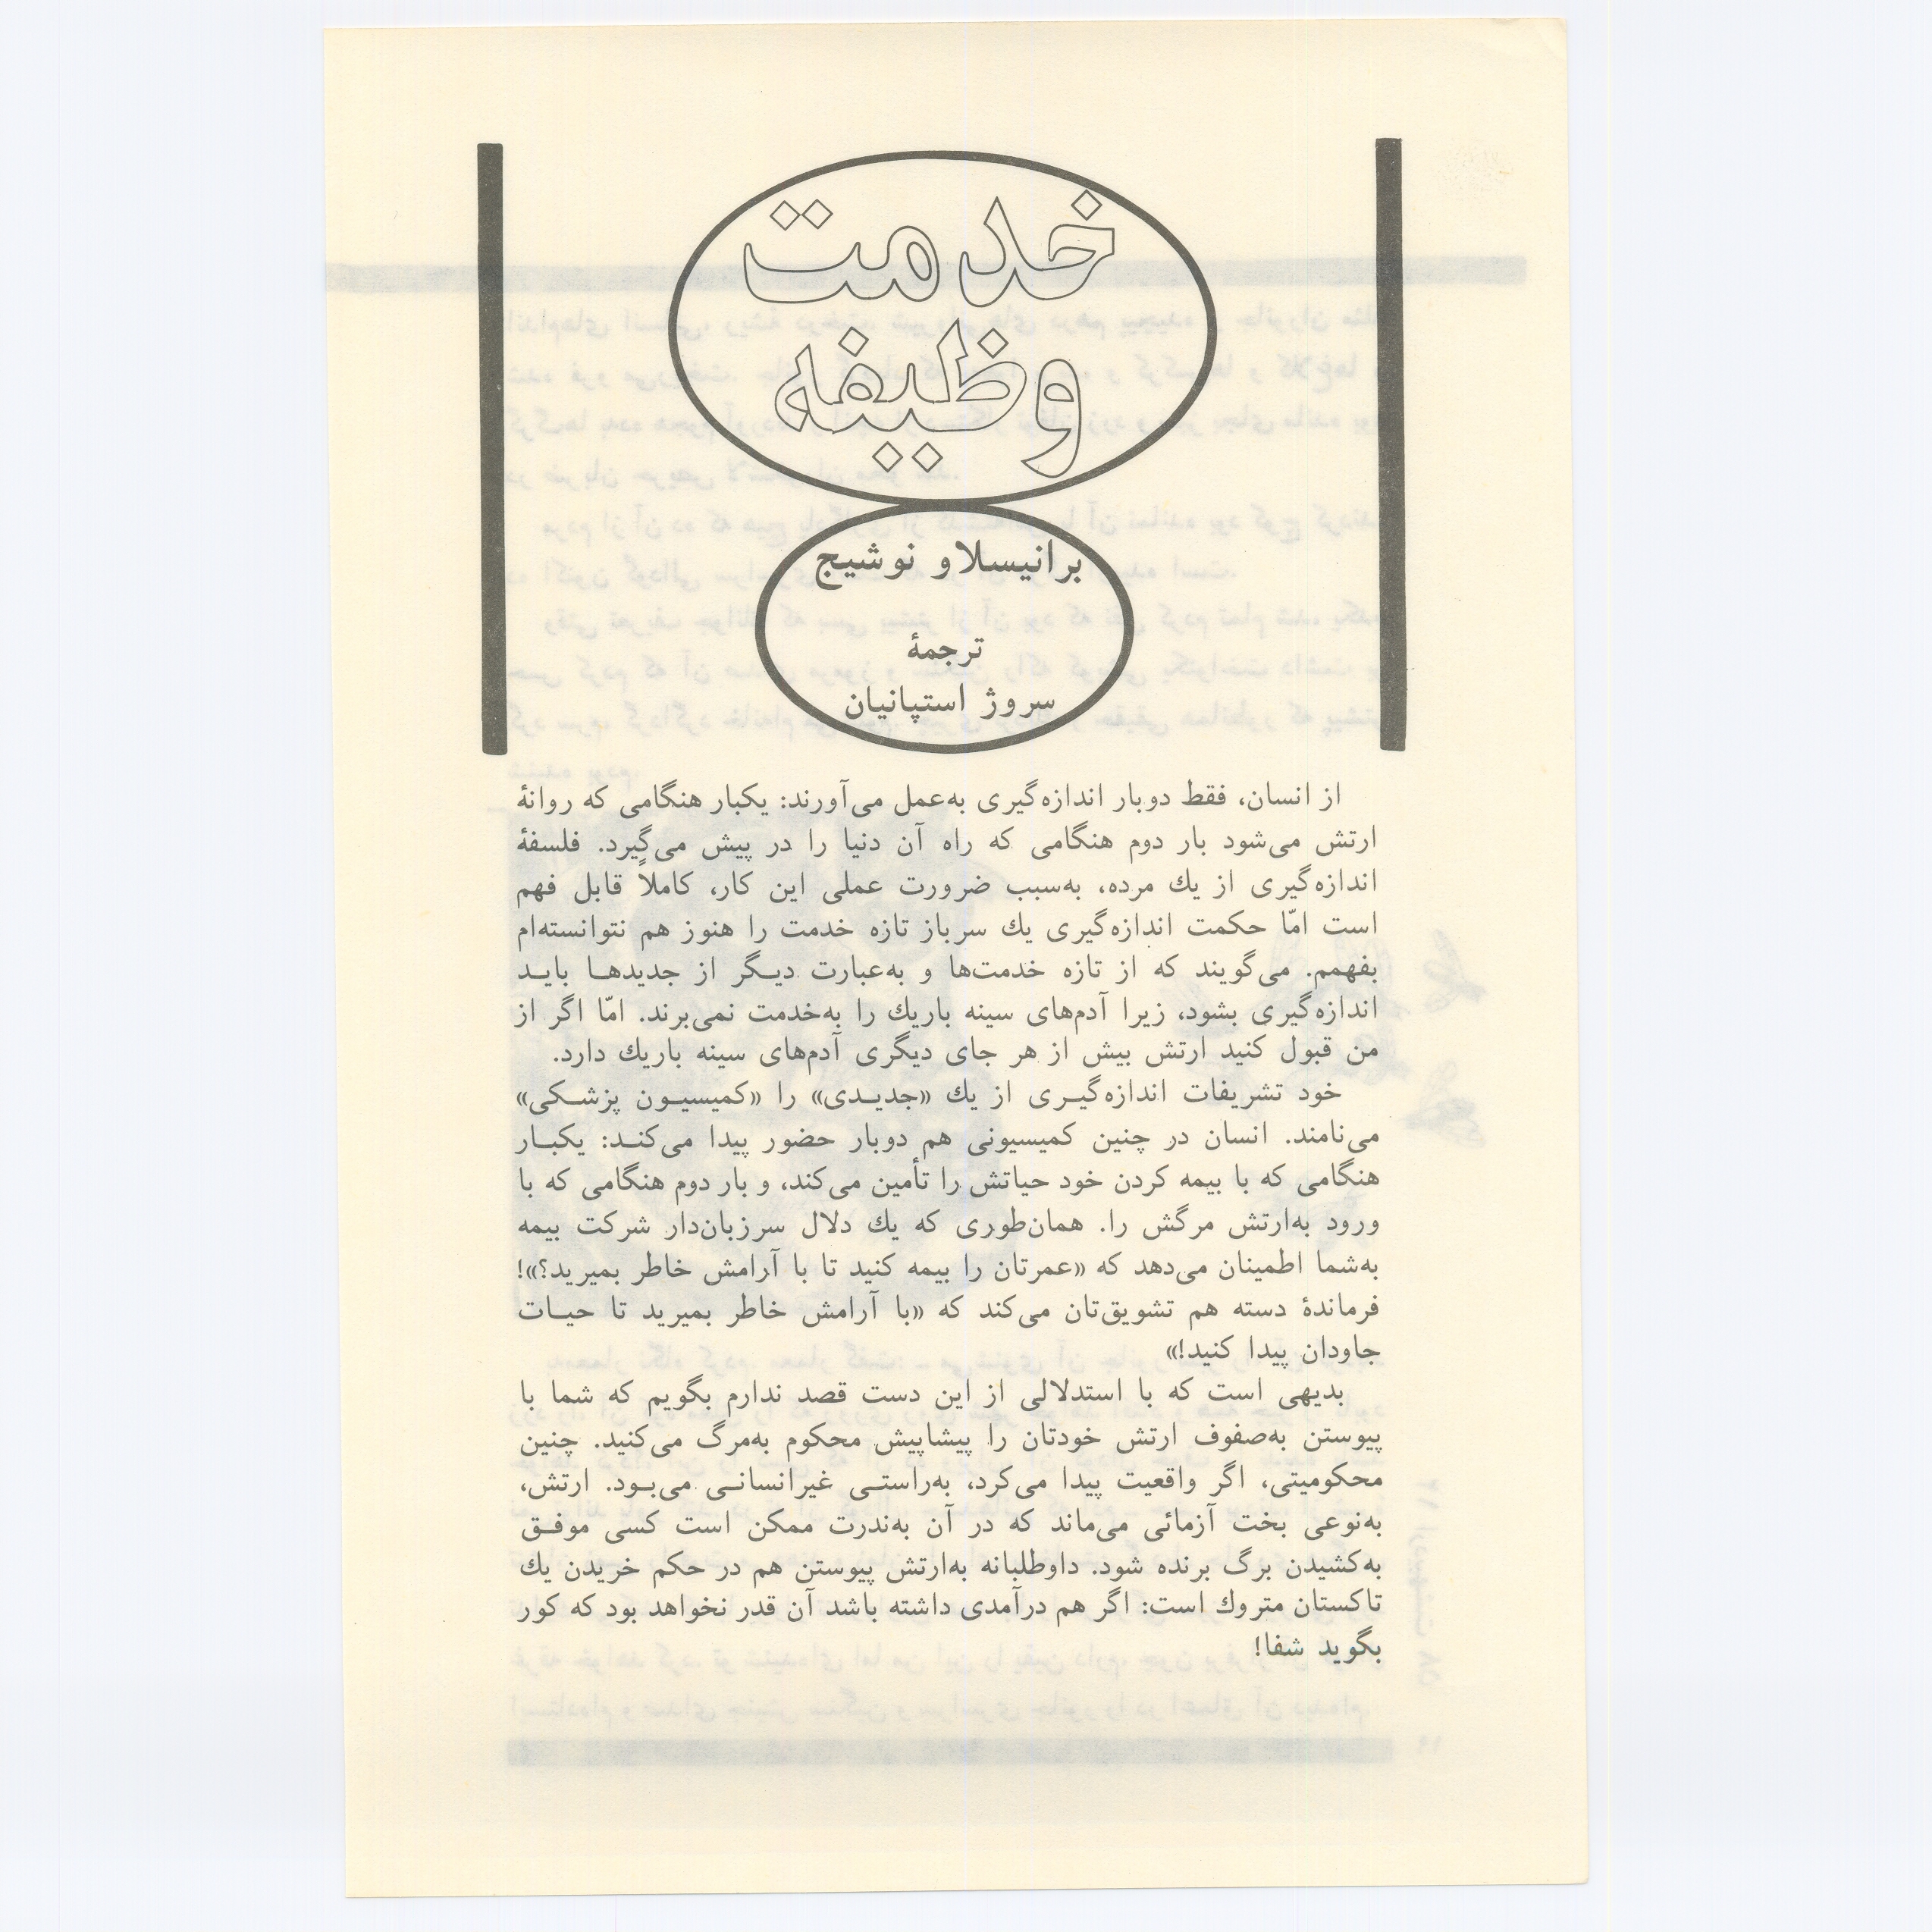 خدمت
وظیفه
برانیسلاو نوشیج
ترجمهٔ
سروژ استپانیان
از انسان، فقط دوبار اندازه‌گیری به‌عمل می‌آورند: یکبار هنگامی که روانهٔ
ارتش می‌شود بار دوم هنگامی که راه آن دنیا را در پیش می‌گیرد. فلسفهٔ
اندازه‌گیری از یك مرده، به‌سبب ضرورت عملی این کار، کاملاً قابل فهم
است امّا حکمت اندازه‌گیری یك سرباز تازه خدمت را هنوز هم نتوانسته‌ام
بفهمم. می‌گویند که از تازه خدمت‌ها و به‌عبارت دیـگر از جدیدهـا بایـد
اندازه‌گیری بشود، زیرا آدم‌های سینه باریك را به‌خدمت نمی‌برند. امّا اگر از
من قبول کنید ارتش بیش از هر جای دیگری آدم‌های سینه باریك دارد.
خود تشریفات اندازه‌گیـری از یك «جدیـدی» را «کمیسیـون پزشـکی»
می‌نامند. انسان در چنین کمیسیونی هم دوبار حضور پیدا می‌کنـد: یکبـار
هنگامی که با بیمه کردن خود حیاتش را تأمین می‌کند، و بار دوم هنگامی که با
ورود به‌ارتش مرگش را. همان‌طوری که یك دلال سرزبان‌دار شرکت بیمه
به‌شما اطمینان می‌دهد که «عمرتان را بیمه کنید تا با آرامش خاطر بمیرید؟»!
فرماندهٔ دسته هم تشویق‌تان می‌کند که «با آرامش خاطر بمیرید تا حیـات
جاودان پیدا کنید!»
بدیهی است که با استدلالی از این دست قصد ندارم بگویم که شما با
پیوستن به‌صفوف ارتش خودتان را پیشاپیش محکوم به‌مرگ می‌کنید. چنین
محکومیتی، اگر واقعیت پیدا می‌کرد، به‌راستـی غیرانسانـی می‌بـود. ارتش،
به‌نوعی بخت آزمائی می‌ماند که در آن به‌ندرت ممکن است کسی موفـق
به‌کشیدن برگ برنده شود. داوطلبانه به‌ارتش پیوستن هم در حکم خریدن یك
تاکستان متروك است: اگر هم درآمدی داشته باشد آن قدر نخواهد بود که کور
بگوید شفا!